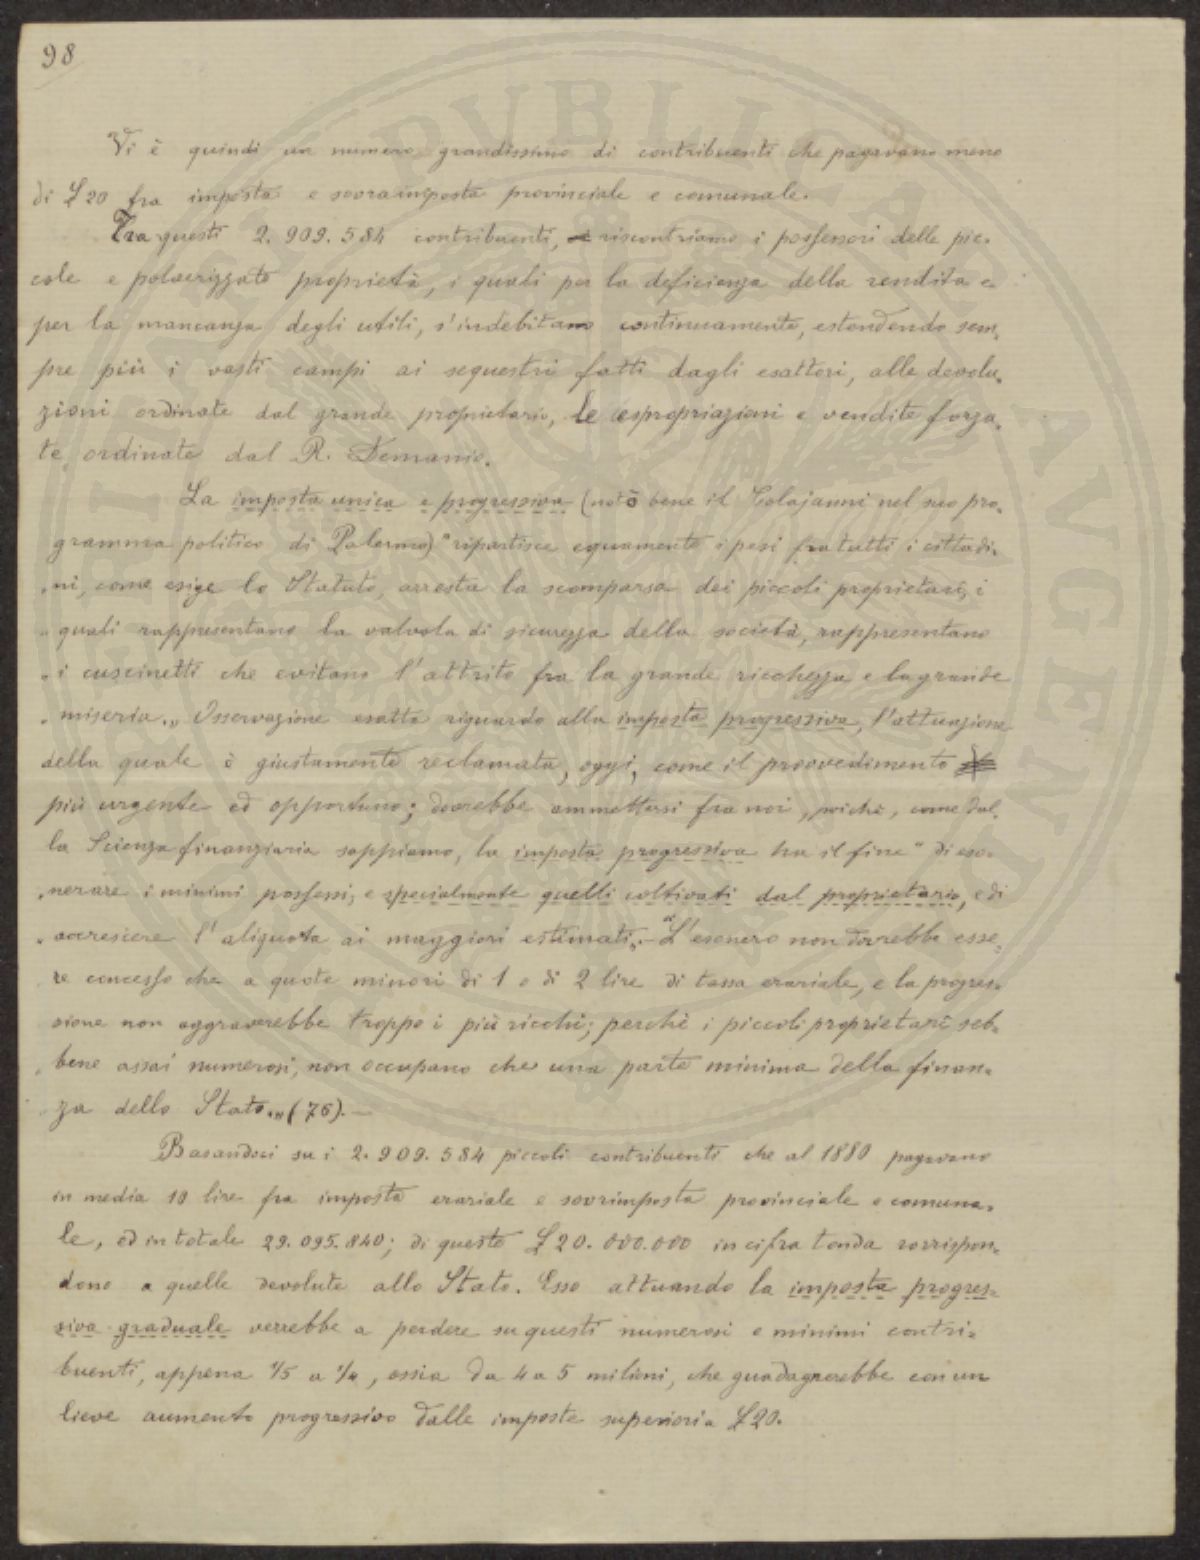 98
Vi è quindi un numero grandissimo di contribuenti che pagavano meno
di £ 20 fra imposta e sovraimposta provinciale e comunale.
Tra questi 2.909.584 contribuenti, riscontriamo i possessori delle pic-
cole e polverizzate proprietà, i quali per la deficienza della rendita e
per la mancanza degli utili, s'indebitano continuamente, estendendo sem-
pre più i vasti campi ai sequestri fatti dagli esattori, alle devolu-
zioni ordinate dal grande proprietario, le espropriazioni e vendite forza-
te ordinate dal R. Demanio.
La imposta unica e progressiva (notò bene il Colajanni nel suo pro-
gramma politico di Palermo) "ripartisce equamente i pesi fra tutti i cittadi-
"ni, come esige lo Statuto, arresta la scomparsa dei piccoli proprietarî, i
"quali rappresentano la valvola di sicurezza della società, rappresentano
"i cuscinetti che evitano l'attrito fra la grande ricchezza e la grande
"miseria.„ Osservazione esatta riguardo alla imposta progressiva, l'attuazione
della quale è giustamente reclamata, oggi, come il provvedimento
più urgente ed opportuno; dovrebbe ammettersi fra noi, poichè, come dal-
la Scienza finanziaria sappiamo, la imposta progressiva ha il fine "di eso-
"nerare i minimi possessi, e specialmente quelli coltivati dal proprietario, e di
"accrescere l'aliquota ai maggiori estimati.- "L'esonero non dovrebbe esse-
re concesso che a quote minori di 1 o di 2 lire di tassa erariale, e la progres-
sione non aggraverebbe troppo i più ricchi; perchè i piccoli proprietarî seb-
bene assai numerosi, non occupano che una parte minima della finan-
za dello Stato.„ (76).-
Basandoci su i 2.909.584 piccoli contribuenti che al 1880 pagavano
in media 10 lire fra imposta erariale e sovrimposta provinciale e comuna-
le, ed in totale 29.095.840; di queste £ 20.000.000 in cifra tonda corrispon-
dono a quelle devolute allo Stato. Esso attuando la imposta progres-
siva graduale verrebbe a perdere su questi numerosi e minimi contri-
buenti, appena 1/5 a 1/4, ossia da 4 a 5 milioni, che guadagnerebbe con un
lieve aumento progressivo dalle imposte superiori a £ 20.